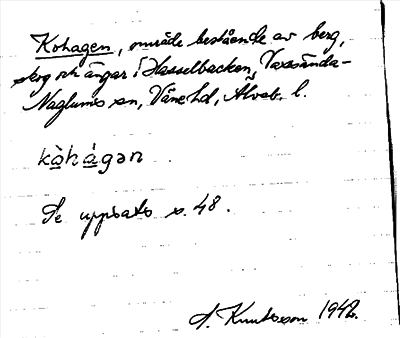 Kohagen, område bestående av berg,
skog och ängar i Hasselbacken, Vassända-
Naglums sn, Väne hd, Älvsb. l.
kòhágən
Se uppsats s. 48.
A. Knutsson 1942.